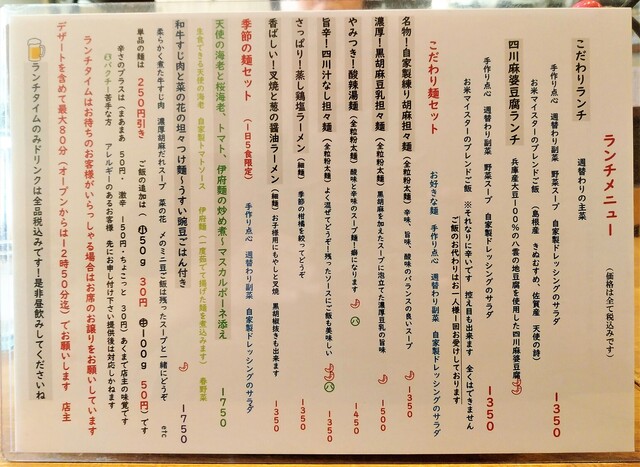 ランチメニュー
(価格は全て税込みです)
こだわりランチ 週替わりの主菜
手作り点心 週替わり副菜 野菜スープ 自家製ドレッシングのサラダ
お米マイスターのブレンドご飯 (島根産 きぬむすめ、佐賀産 天使の詩)
1350
四川麻婆豆腐ランチ 兵庫産大豆100%の八雲の地豆腐を使用した四川麻婆豆腐
手作り点心 週替わり副菜 野菜スープ 自家製ドレッシングのサラダ 1350
お米マイスターのブレンドご飯 ※それなりに辛いです 控え目も出来ます 全くはできません
ご飯のお代わりはお一人様1回お受けしております
こだわり麺セット お好きな麺 手作り点心 週替わり副菜 自家製ドレッシングのサラダ
名物!自家製練り胡麻担々麺 (全粒粉太麺) 辛味、旨味、酸味のバランスの良いスープ 1350
濃厚!黒胡麻豆乳担々麺 (全粒粉太麺) 黒胡麻を加えたスープに泡立てた濃厚豆乳の旨味 1500
やみつき!酸辣湯麺 (全粒粉太麺) 酸味と辛味のスープ麺!癖になります パ 1450
旨辛!四川汁なし担々麺 (全粒粉太麺) よく混ぜてどうぞ!残ったソースにご飯も美味しい パ 1350
さっぱり!蒸し鶏塩ラーメン (細麺) 季節の柑橘を絞ってどうぞ 1350
香ばしい!叉焼と葱の醤油ラーメン (細麺) お子様用にもやしと叉焼 黒胡椒抜きも出来ます 1350
季節の麺セット (1日5食限定) 手作り点心 週替わり副菜 自家製ドレッシングのサラダ
天使の海老と桜海老、トマト、伊府麺の炒め煮~マスカルポーネ添え 1750
生食できる天使の海老 自家製トマトソース 伊府麺(一度茹でて揚げた麺を煮込みます) 春野菜
和牛すじ肉と菜の花の坦々つけ麺~うすい豌豆ごはん付き 1750
柔らかく煮た牛すじ肉 濃厚胡麻だれスープ 菜の花 〆のミニ豆ご飯は残ったスープと一緒にどうぞ etc
単品の麺は 250円引き ご飯の追加は(小50g 30円 中100g 50円)です
辛さのプラスは(まあまあ 50円・ 激辛 150円・ちょこっと 30円)あくまで店主の味覚です
パクチー苦手な方 アレルギーのあるお客様 先にお申し付け下さい提供後は対応しかねます
ランチタイムはお待ちのお客様がいらっしゃる場合はお席のお譲りをお願いしています
デザートを含めて最大80分(オープンからは12時50分迄)でお願いします 店主
ランチタイムのみドリンクは全品税込みです!是非昼飲みしてくださいね